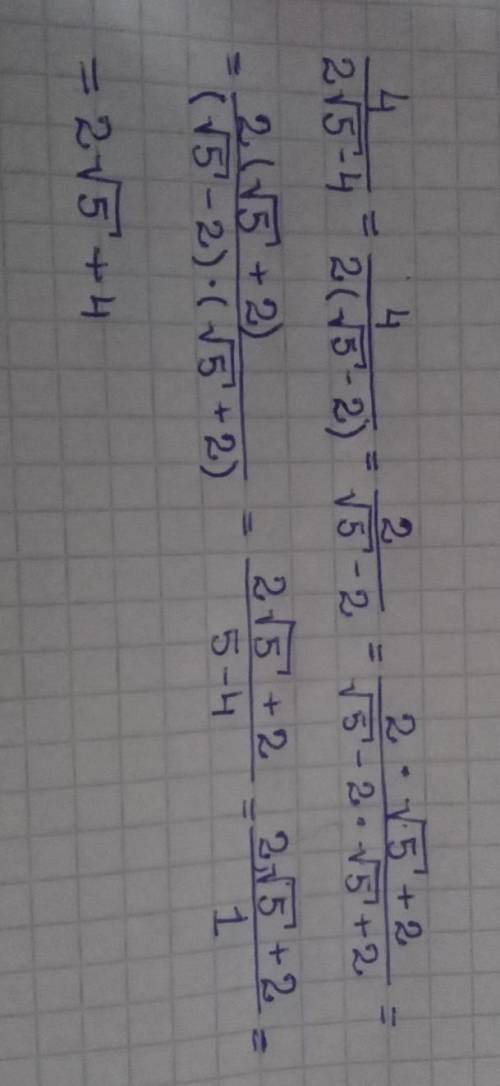 4/(2√5-4) = 4/(2(√5-2)) = 2/(√5-2) = (2·√5+2)/(√5-2·√5+2) =
= (2(√5+2))/((√5-2)·(√5+2)) = (2√5+2)/(5-4) = (2√5+2)/1 =
= 2√5+4